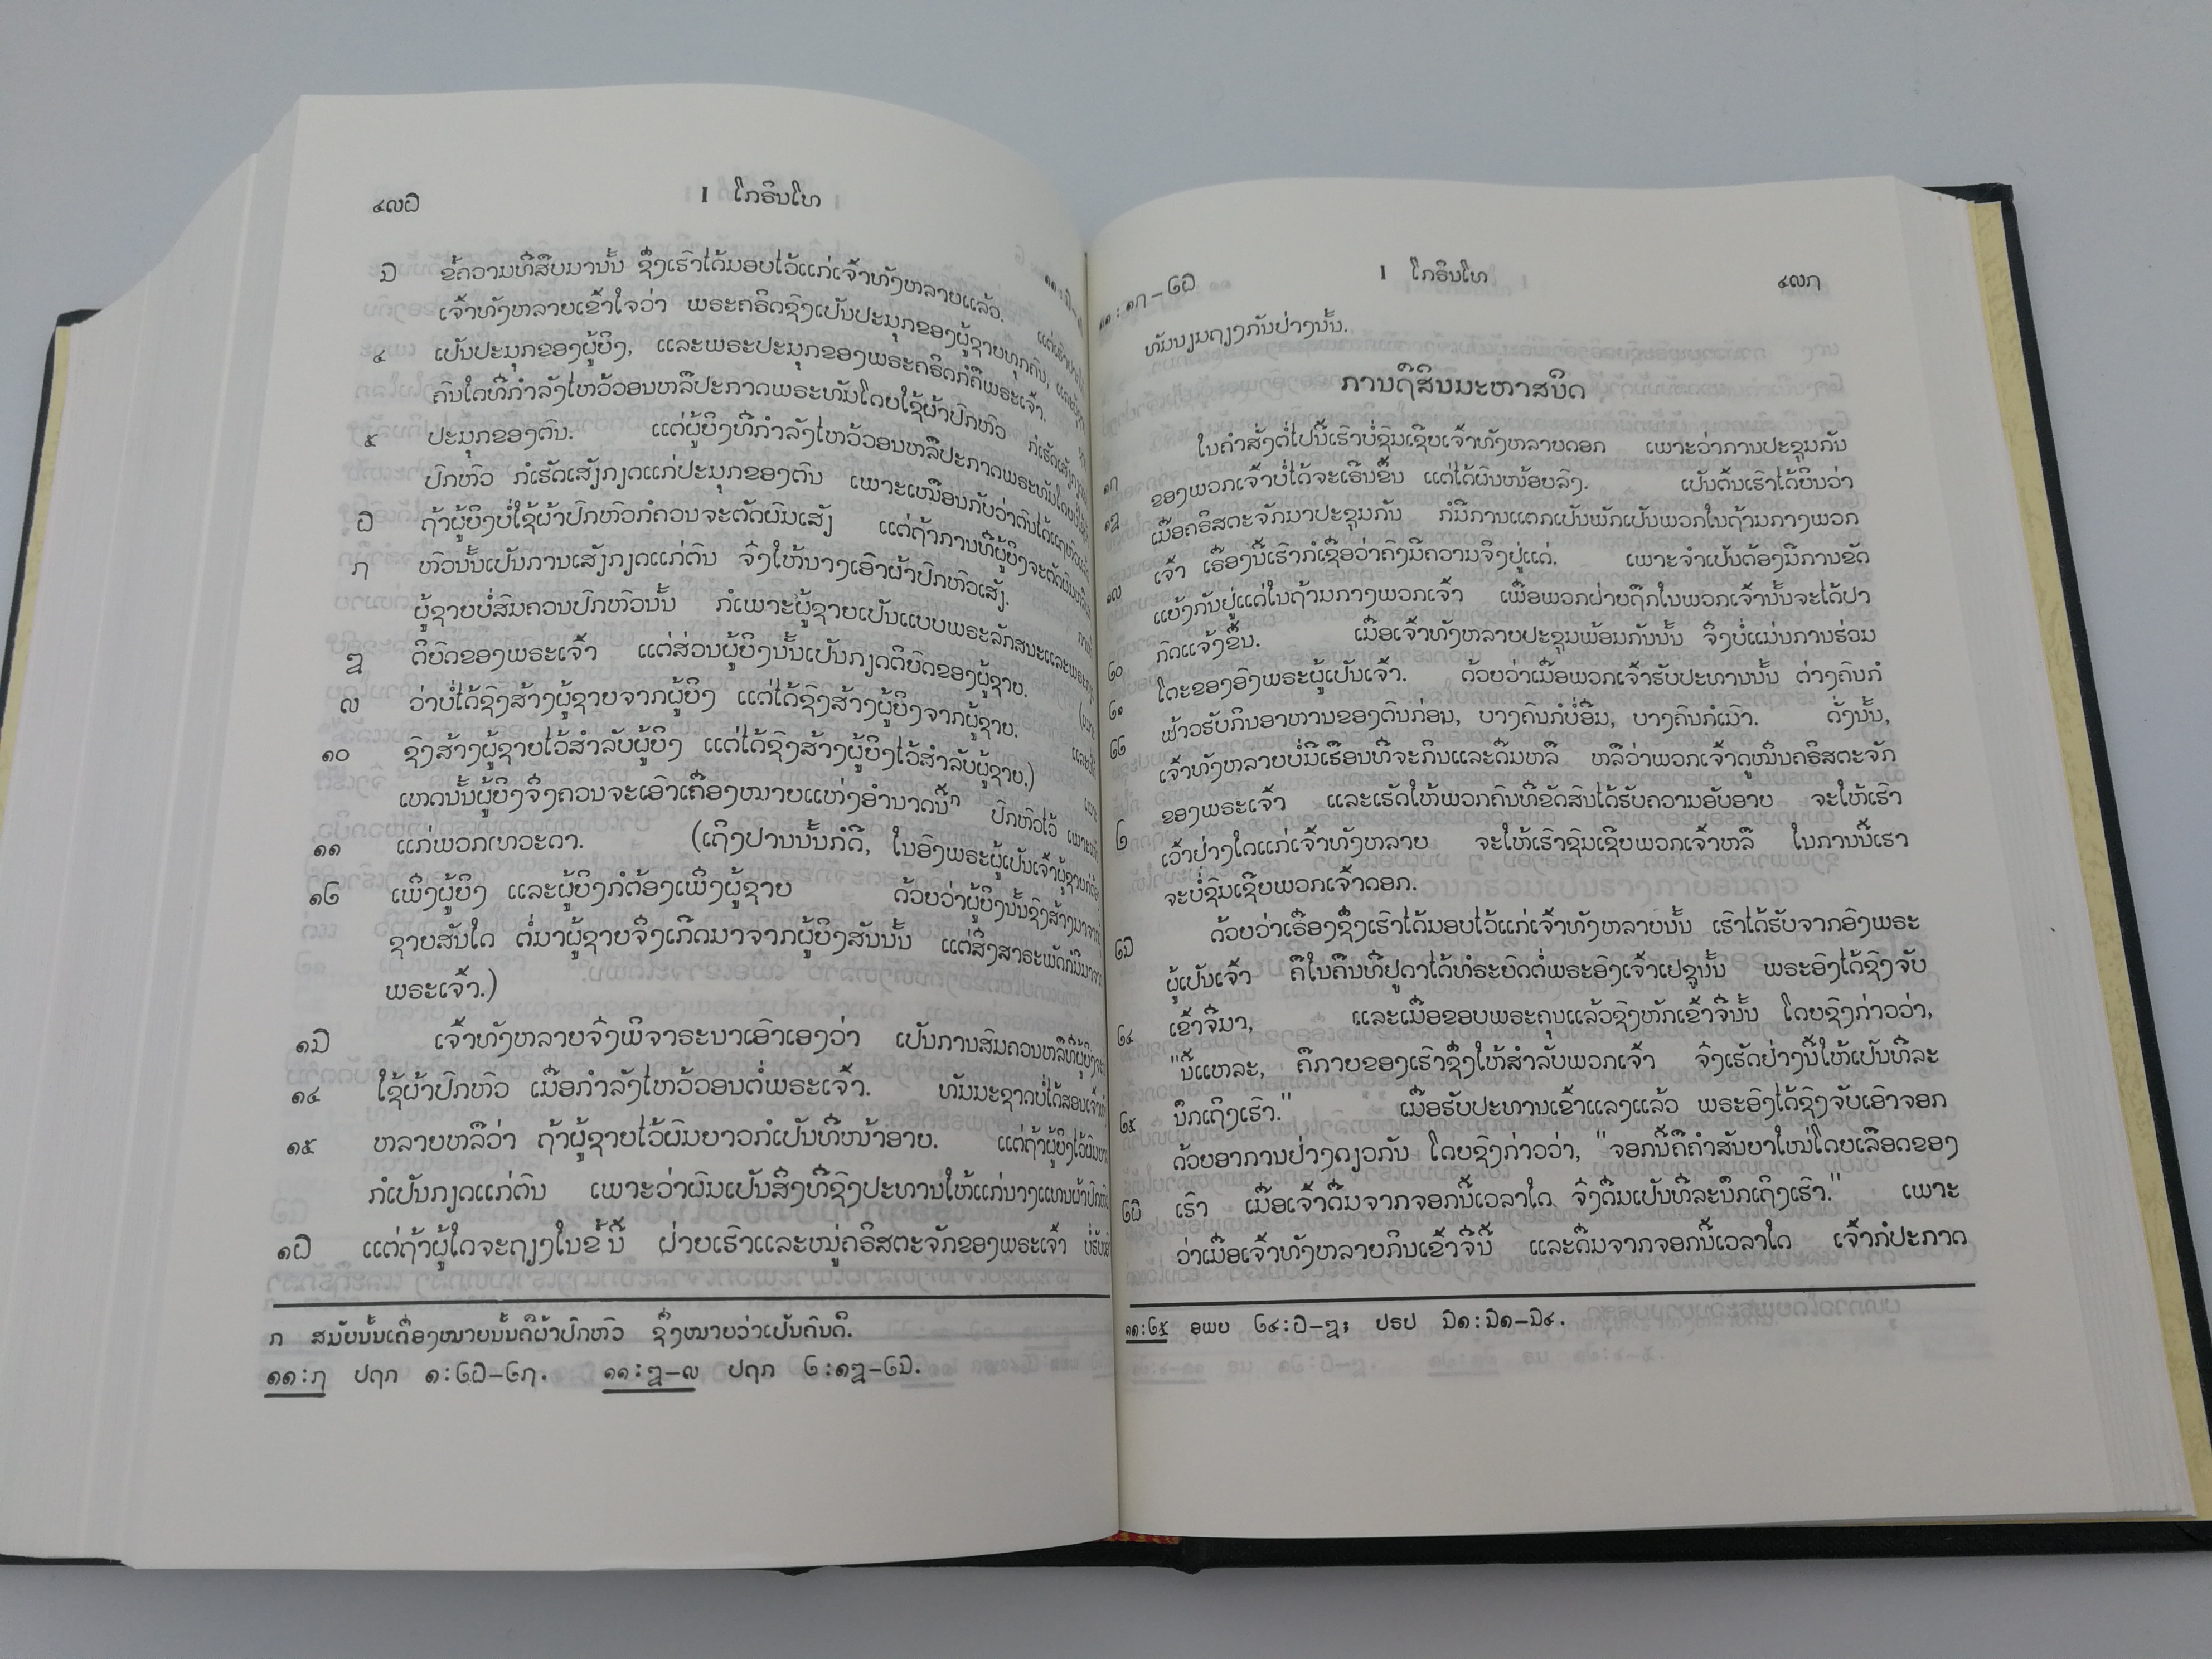 ໔໙໖
I ໂກຣິນໂທ
໓ ຂໍ້ຄວາມທີ່ສືບມານັ້ນ ຊຶ່ງເຮົາໄດ້ມອບໄວ້ແກ່ເຈົ້າທັງຫລາຍແລ້ວ.
ເຈົ້າທັງຫລາຍເຂົ້າໃຈວ່າ ພຣະຄຣິດຊົງເປັນປະມຸກຂອງຜູ້ຊາຍທຸກຄົນ,
໔ ເປັນປະມຸກຂອງຜູ້ຍິງ, ແລະພຣະປະມຸກຂອງພຣະຄຣິດກໍຄືພຣະເຈົ້າ.
ຄົນໃດທີ່ກຳລັງໄຫວ້ວອນຫລືປະກາດພຣະທັມໂດຍໃຊ້ຜ້າປົກຫົວ ກໍເຮັດເສັງ
໕ ປະມຸກຂອງຕົນ. ແຕ່ຜູ້ຍິງທີ່ກຳລັງໄຫວ້ວອນຫລືປະກາດພຣະທັມໂດຍ
ປົກຫົວ ກໍເຮັດເສັງກຽດແກ່ປະມຸກຂອງຕົນ ເພາະເໝືອນກັບວ່າຕົນໄດ້
໖ ຖ້າຜູ້ຍິງບໍ່ໃຊ້ຜ້າປົກຫົວກໍຄວນຈະຕັດຜົມເສັງ ແຕ່ຖ້າການທີ່ຜູ້ຍິງຈະຕັດຜົມ
໗ ຫົວນັ້ນເປັນການເສັງກຽດແກ່ຕົນ ຈົ່ງໃຫ້ນາງເອົາຜ້າປົກຫົວເສັງ.
ຜູ້ຊາຍບໍ່ສົມຄວນປົກຫົວນັ້ນ ກໍເພາະຜູ້ຊາຍເປັນແບບພຣະລັກສນະແລະ
໘ ຕິຍົດຂອງພຣະເຈົ້າ ແຕ່ສ່ວນຜູ້ຍິງນັ້ນເປັນກຽດຕິຍົດຂອງຜູ້ຊາຍ.
໙ ວ່າບໍ່ໄດ້ຊົງສ້າງຜູ້ຊາຍຈາກຜູ້ຍິງ ແຕ່ໄດ້ຊົງສ້າງຜູ້ຍິງຈາກຜູ້ຊາຍ.
໑໐ ຊົງສ້າງຜູ້ຊາຍໄວ້ສຳລັບຜູ້ຍິງ ແຕ່ໄດ້ຊົງສ້າງຜູ້ຍິງໄວ້ສຳລັບຜູ້ຊາຍ.)
ເຫດນັ້ນຜູ້ຍິງຈຶ່ງຄວນຈະເອົາເຄື່ອງໝາຍແຫ່ງອຳນາດນີ້ກ ປົກຫົວໄວ້
໑໑ ແກ່ພວກເທວະດາ. (ເຖິງປານນັ້ນກໍດີ, ໃນອົງພຣະຜູ້ເປັນເຈົ້າຜູ້ຊາຍ
໑໒ ເພິ່ງຜູ້ຍິງ ແລະຜູ້ຍິງກໍຕ້ອງເພິ່ງຜູ້ຊາຍ ດ້ວຍວ່າຜູ້ຍິງນັ້ນຊົງສ້າງມາຈາກ
ຊາຍສັນໃດ ຕໍ່ມາຜູ້ຊາຍຈຶ່ງເກີດມາຈາກຜູ້ຍິງສັນນັ້ນ ແຕ່ສິ່ງສາຣະພັດກໍມີມາ
ພຣະເຈົ້າ.)
໑໓ ເຈົ້າທັງຫລາຍຈົ່ງພິຈາຣະນາເອົາເອງວ່າ ເປັນການສົມຄວນຫລືທີ່ຜູ້ຍິງ
໑໔ ໃຊ້ຜ້າປົກຫົວ ເມື່ອກຳລັງໄຫວ້ວອນຕໍ່ພຣະເຈົ້າ. ທັມມະຊາດບໍ່ໄດ້ສອນ
໑໕ ຫລາຍຫລືວ່າ ຖ້າຜູ້ຊາຍໄວ້ຜົມຍາວກໍເປັນທີ່ໜ້າອາຍ. ແຕ່ຖ້າຜູ້ຍິງໄວ້
ກໍເປັນກຽດແກ່ຕົນ ເພາະວ່າຜົມເປັນສິ່ງທີ່ຊົງປະທານໃຫ້ແກ່ນາງແທນຜ້າ
໑໖ ແຕ່ຖ້າຜູ້ໃດຈະຖຽງໃນຂໍ້ນີ້ ຝ່າຍເຮົາແລະໝູ່ຄຣິສຕະຈັກຂອງພຣະເຈົ້າ
ກ ສມັຍນັ້ນເຄື່ອງໝາຍນັ້ນຄືຜ້າປົກຫົວ ຊຶ່ງໝາຍວ່າເປັນຄົນດີ.
໑໑:໗ ປຖກ ໑:໒໖-໒໗. ໑໑:໘-໙ ປຖກ ໒:໑໘-໒໓.
໑໑:໑໗-໒໖
I ໂກຣິນໂທ
໔໙໗
ທັມນຽມຖຽງກັນຢ່າງນັ້ນ.
ການຖືສິນມະຫາສນິດ
ໃນຄຳສັ່ງຕໍ່ໄປນີ້ເຮົາບໍ່ຊົມເຊີຍເຈົ້າທັງຫລາຍດອກ ເພາະວ່າການປະຊຸມກັນ
໑໗ ຂອງພວກເຈົ້າບໍ່ໄດ້ຈະເຣີນຂຶ້ນ ແຕ່ໄດ້ຜົນໜ້ອຍລົງ. ເປັນຕົ້ນເຮົາໄດ້ຍິນວ່າ
໑໘ ເມື່ອຄຣິສຕະຈັກມາປະຊຸມກັນ ກໍມີການແຕກເປັນພັກເປັນພວກໃນຖ້າມກາງພວກ
ເຈົ້າ ເຣື່ອງນີ້ເຮົາກໍເຊື່ອວ່າຄົງມີຄວາມຈິງຢູ່ແດ່. ເພາະຈຳເປັນຕ້ອງມີການຂັດ
໑໙ ແຍ້ງກັນຢູ່ແດ່ໃນຖ້າມກາງພວກເຈົ້າ ເພື່ອພວກຝ່າຍຖືກໃນພວກເຈົ້ານັ້ນຈະໄດ້ປາ
ກົດແຈ້ງຂຶ້ນ. ເມື່ອເຈົ້າທັງຫລາຍປະຊຸມພ້ອມກັນນັ້ນ ຈຶ່ງບໍ່ແມ່ນການຮ່ວມ
໒໐ ໂຕະຂອງອົງພຣະຜູ້ເປັນເຈົ້າ. ດ້ວຍວ່າເມື່ອພວກເຈົ້າຮັບປະທານນັ້ນ ຕ່າງຄົນກໍ
໒໑ ຟ້າວຮັບກິນອາຫານຂອງຕົນກ່ອນ, ບາງຄົນກໍບໍ່ອີ່ມ, ບາງຄົນກໍເມົາ. ດັ່ງນັ້ນ,
໒໒ ເຈົ້າທັງຫລາຍບໍ່ມີເຮືອນທີ່ຈະກິນແລະດື່ມຫລື ຫລືວ່າພວກເຈົ້າດູໝິ່ນຄຣິສຕະຈັກ
ຂອງພຣະເຈົ້າ ແລະເຮັດໃຫ້ພວກຄົນທີ່ຂັດສົນໄດ້ຮັບຄວາມອັບອາຍ ຈະໃຫ້ເຮົາ
ເວົ້າຢ່າງໃດແກ່ເຈົ້າທັງຫລາຍ ຈະໃຫ້ເຮົາຊົມເຊີຍພວກເຈົ້າຫລື ໃນການນີ້ເຮົາ
ຈະບໍ່ຊົມເຊີຍພວກເຈົ້າດອກ.
໒໓ ດ້ວຍວ່າເຣື່ອງຊຶ່ງເຮົາໄດ້ມອບໄວ້ແກ່ເຈົ້າທັງຫລາຍນັ້ນ ເຮົາໄດ້ຮັບຈາກອົງພຣະ
ຜູ້ເປັນເຈົ້າ ຄືໃນຄືນທີ່ຢູດາໄດ້ທໍຣະຍົດຕໍ່ພຣະອົງເຈົ້າເຢຊູນັ້ນ ພຣະອົງໄດ້ຊົງຈັບ
໒໔ ເຂົ້າຈີ່ມາ, ແລະເມື່ອຂອບພຣະຄຸນແລ້ວຊົງຫັກເຂົ້າຈີ່ນັ້ນ ໂດຍຊົງກ່າວວ່າ,
"ນີ້ແຫລະ, ຄືກາຍຂອງເຮົາຊຶ່ງໃຫ້ສຳລັບພວກເຈົ້າ ຈົ່ງເຮັດຢ່າງນີ້ໃຫ້ເປັນທີ່ລະ
໒໕ ນຶກເຖິງເຮົາ." ເມື່ອຮັບປະທານເຂົ້າແລງແລ້ວ ພຣະອົງໄດ້ຊົງຈັບເອົາຈອກ
ດ້ວຍອາການຢ່າງດຽວກັນ ໂດຍຊົງກ່າວວ່າ, "ຈອກນີ້ຄືຄຳສັນຍາໃໝ່ໂດຍເລືອດຂອງ
໒໖ ເຮົາ ເມື່ອເຈົ້າດື່ມຈາກຈອກນີ້ເວລາໃດ ຈົ່ງດື່ມເປັນທີ່ລະນຶກເຖິງເຮົາ." ເພາະ
ວ່າເມື່ອເຈົ້າທັງຫລາຍກິນເຂົ້າຈີ່ນີ້ ແລະດື່ມຈາກຈອກນີ້ເວລາໃດ ເຈົ້າກໍປະກາດ
໑໑:໒໕ ອພຍ ໒໔:໖-໘; ຢຣຢ ໓໑:໓໑-໓໔.